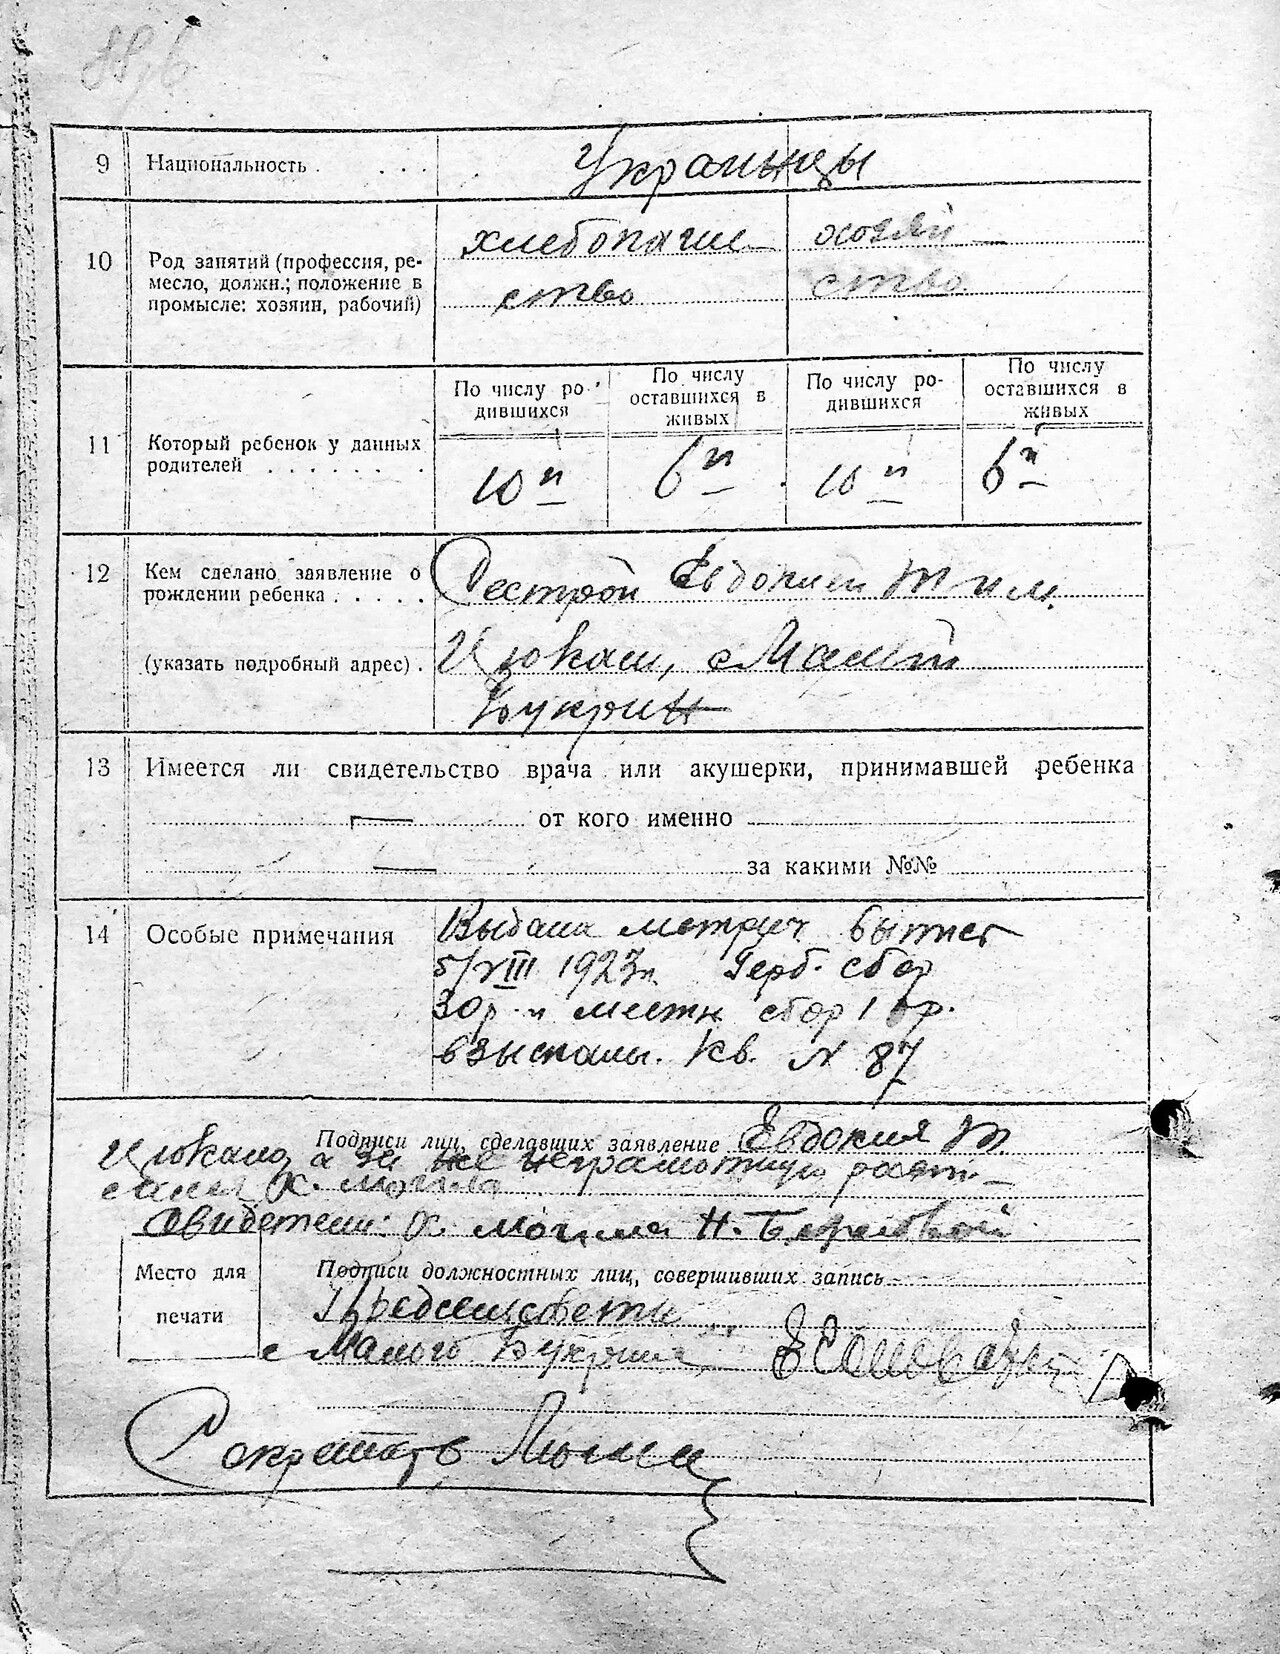 9 Национальность . . . . Украинцы
10 Род занятий (профессия, ре-
месло, должн.; положение в
промысле: хозяин, рабочий)
хлебопаше
ство
хозяй
ство
11 Который ребенок у данных
родителей . . . . . . .
По числу ро-
дившихся
По числу
оставшихся в
живых
По числу ро-
дившихся
По числу
оставшихся в
живых
10й 6й 10й 6й
12 Кем сделано заявление о
рождении ребенка . . . . .
(указать подробный адрес) .
Сестрой Евдокией Тим.
Цюкало, с Малый
Букрин
13 Имеется ли свидетельство врача или акушерки, принимавшей ребенка
— от кого именно
— за какими №№
14 Особые примечания
Выдана метрич
5/VIII 1923г. Герб. сбор
30р. и местн сбор 1
взысканы. Кв. N 87
Подписи лиц, сделавших заявление Евдокия Т.
Цюкало а за неё неграмотную распи-
Х. Могила
Свидетели: Х. Могила Н.
Место для
печати
Подписи должностных лиц, совершивших запись
с Малого Букрина
Секретарь